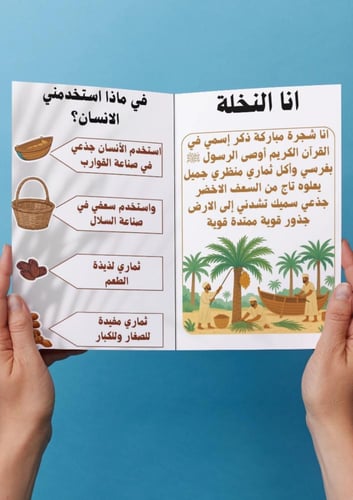 انا النخلة
انا شجرة مباركة ذكر إسمي في
القرآن الكريم أوصى الرسول ﷺ
بغرسي وأكل ثماري منظري جميل
يعلوه تاج من السعف الاخضر
جذعي سميك تشدني إلى الارض
جذور قوية ممتدة قوية
في ماذا استخدمني
الانسان؟
استخدم الأنسان جذعي
في صناعة القوارب
واستخدم سعفي في
صناعة السلال
ثماري لذيذة
الطعم
ثماري مفيدة
للصغار وللكبار